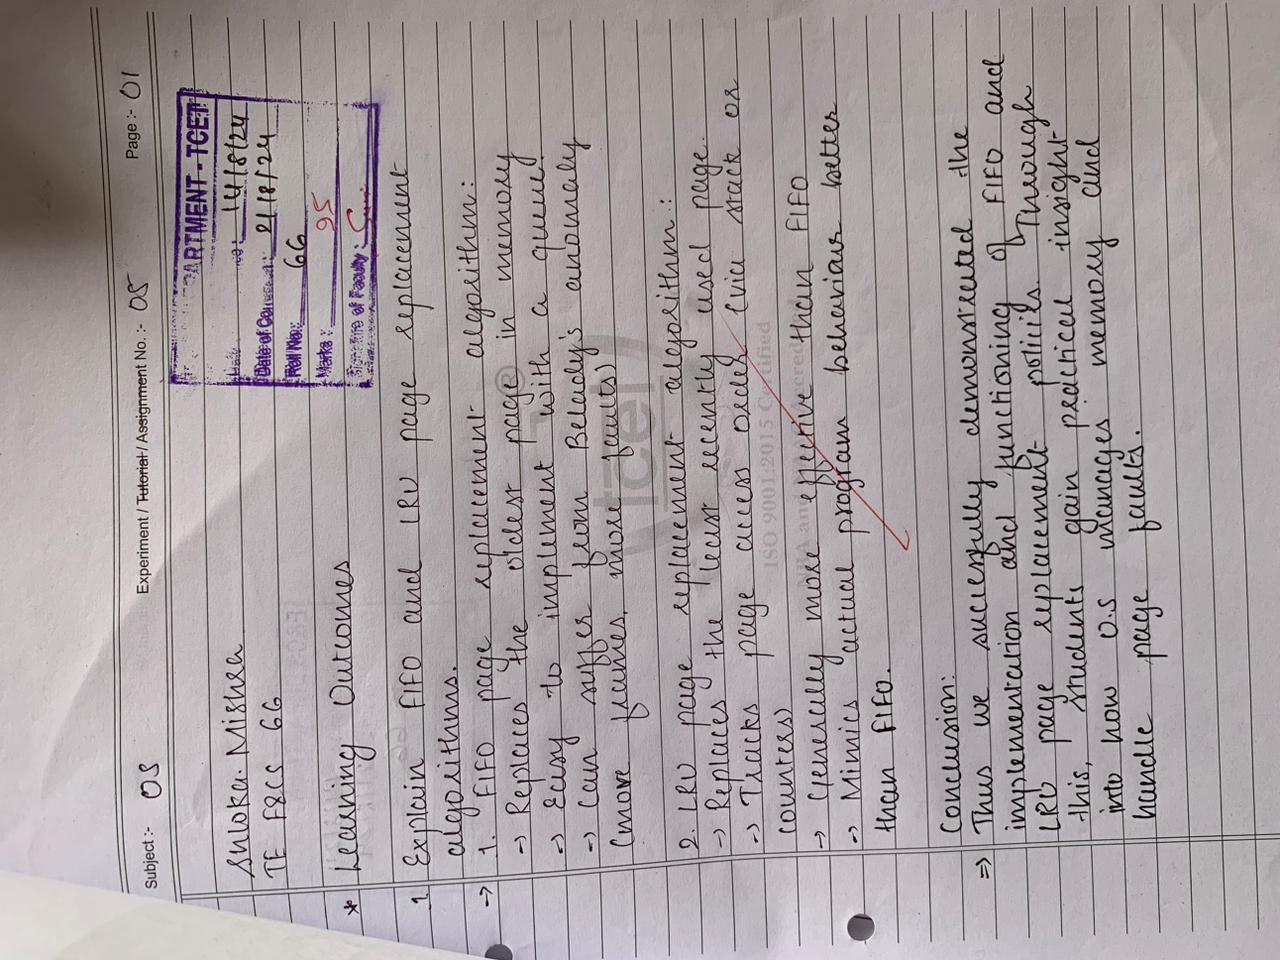 Subject :- OS Experiment / Tutorial / Assignment No. :- 05 Page :- 01
ARTMENT - TCET
14/8/24
Date of 21/8/24
Roll No: 66
Marks : 95
of Faculty :
Shloka. Mishra
TE E&CS 66
* Learning Outcomes
1 Explain FIFO and LRU page replacement
algorithms.
→ 1. FIFO page replacement algorithm:
→ Replaces the oldest page in memory
→ Easy to implement with a queue.
→ Can suffer from Belady's anomaly
(more frames, more faults)
tcet
2. LRU page replacement algorithm:
→ Replaces the least recently used page.
→ Tracks page access order (via stack or
counters)
ISO 9001:2015 Certified
→ Generally more effective than FIFO
→ Mimics actual program behaviour better
than FIFO.
Conclusion:
⇒ Thus we succesfully demonstrated the
implementation and functioning of FIFO and
LRU page replacement policies. Through
this, students gain practical insight
into how O.S manages memory and
handle page faults.